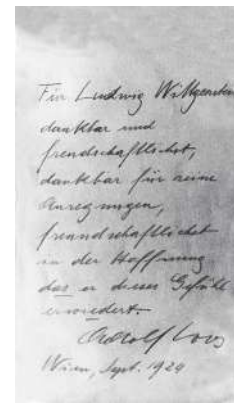 Für Ludwig Wittgenstein
dankbar und
freundschaftlichst,
dankbar für seine
Anregungen,
freundschaftlichst
in der Hoffnung
das er dieses Gefühl
erwiedert.
Adolf Loos
Wien, Sept. 1924